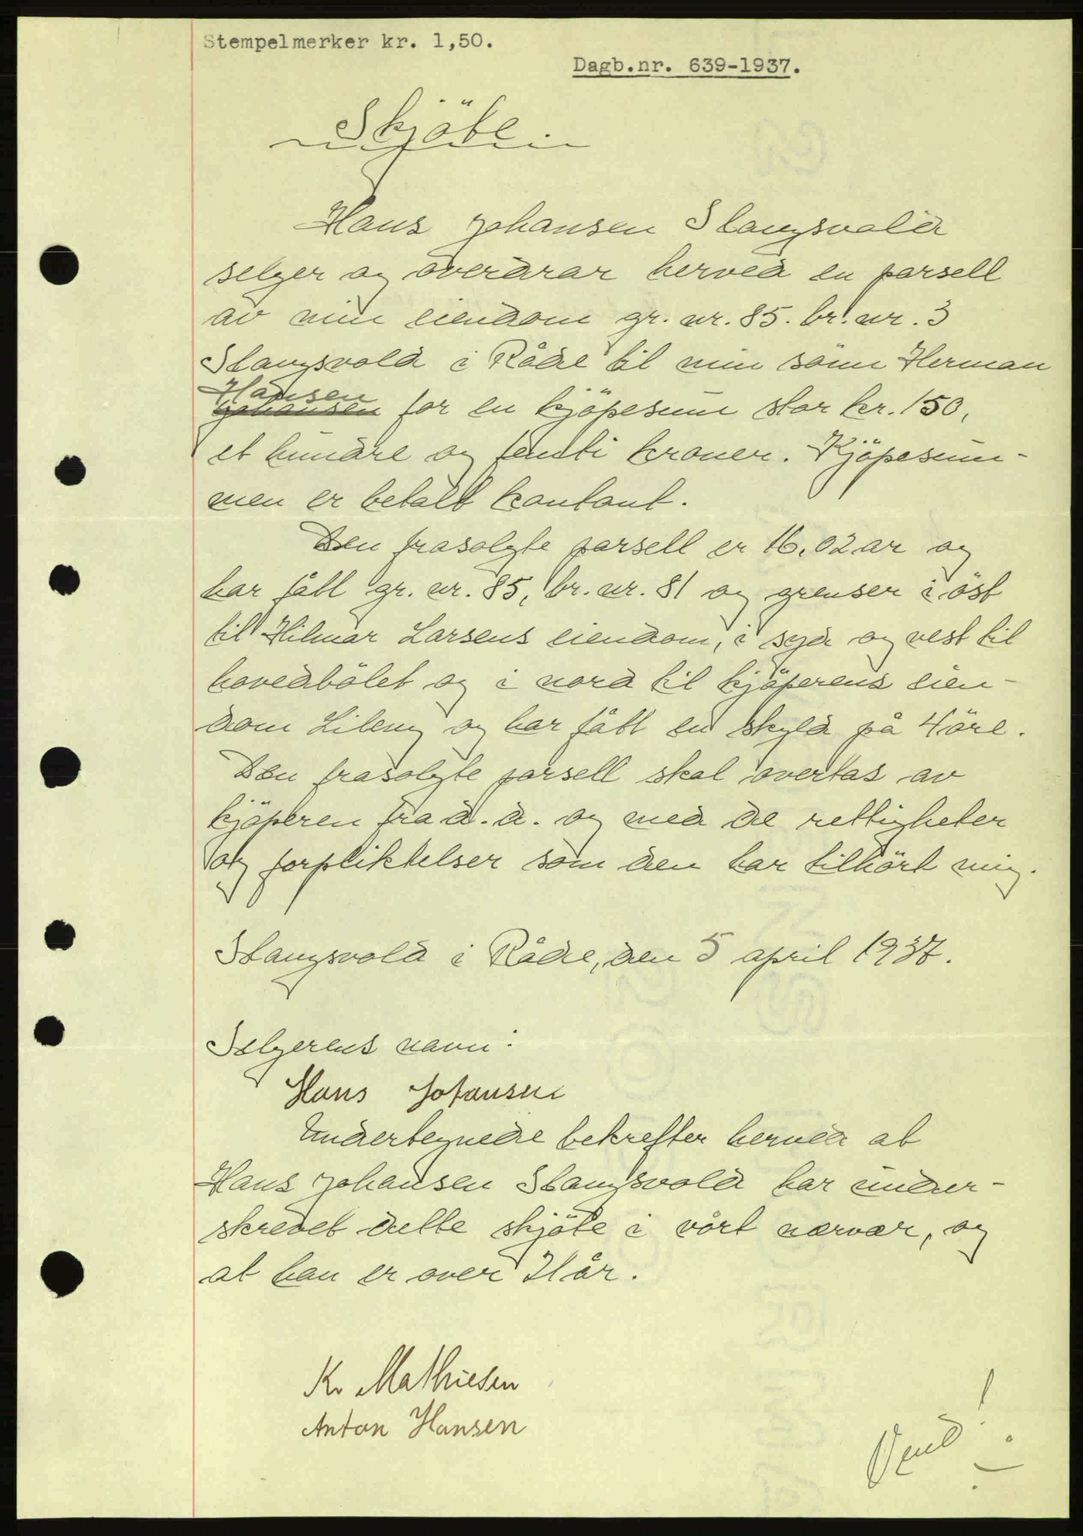 Stempelmerker kr. 1,50.
Dagb.nr. 639-1937.
Skjöte.
Hans Johansen Slangsvold
selger og overdrar herved en parsell
av min eiendom gr. nr. 85. br. nr. 3
Slangsvold i Råde til min sönn Herman
Hansen
Johansen for en kjöpesum stor kr. 150,
et hundre og femti kroner. Kjöpesum-
men er betalt kontant.
Den frasolgte parsell er 16,02 ar og
har fått gr. nr. 85, br. nr. 81 og grenser i öst
til Hilmar Larsens eiendom, i syd og vest til
hovedbölet og i nord til kjöperens eien-
dom Lileng og har fått en skyld på 4 öre.
Den frasolgte parsell skal overtas av
kjöperen fra d.d. og med de rettigheter
og forpliktelser som den har tilhört mig.
Slangsvold i Råde, den 5 april 1937.
Selgerens navn:
Hans Johansen
Undertegnede bekrefter herved at
Hans Johansen Slangsvold har under-
skrevet dette skjöte i vårt nærvær, og
at han er over 21 år.
Kr. Mathiesen
Anton Hansen
Vend!